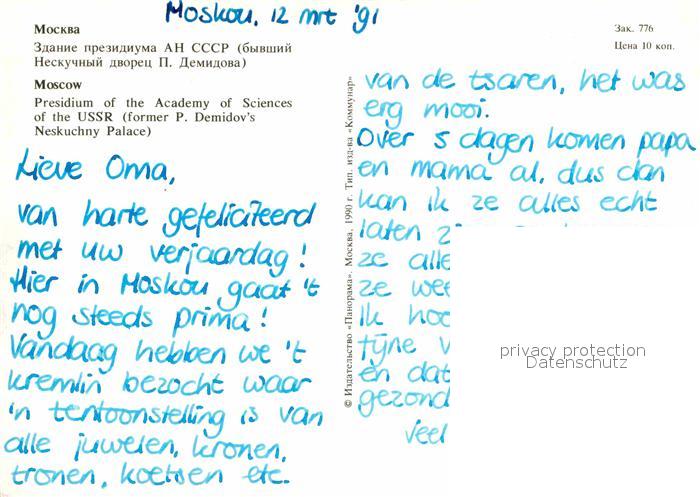 Moskou, 12 mrt '91
Москва
Здание президиума АН СССР (бывший
Нескучный дворец П. Демидова)
Moscow
Presidium of the Academy of Sciences
of the USSR (former P. Demidov's
Neskuchny Palace)
Зак. 776
Цена 10 коп.
Lieve Oma,
van harte gefeliciteerd
met uw verjaardag!
Hier in Moskou gaat 't
nog steeds prima!
Vandaag hebben we 't
kremlin bezocht waar
'n tentoonstelling is van
alle juwelen, kronen,
tronen, koetsen etc.
© Издательство «Панорама». Москва, 1990 г. Тип. изд-ва «Коммунар»
van de tsaren, het was
erg mooi.
Over 5 dagen komen papa
en mama al, dus dan
kan ik ze alles echt
laten
ze alle
ze
Ik
fijne
en dat
gezond
veel
privacy protection
Datenschutz